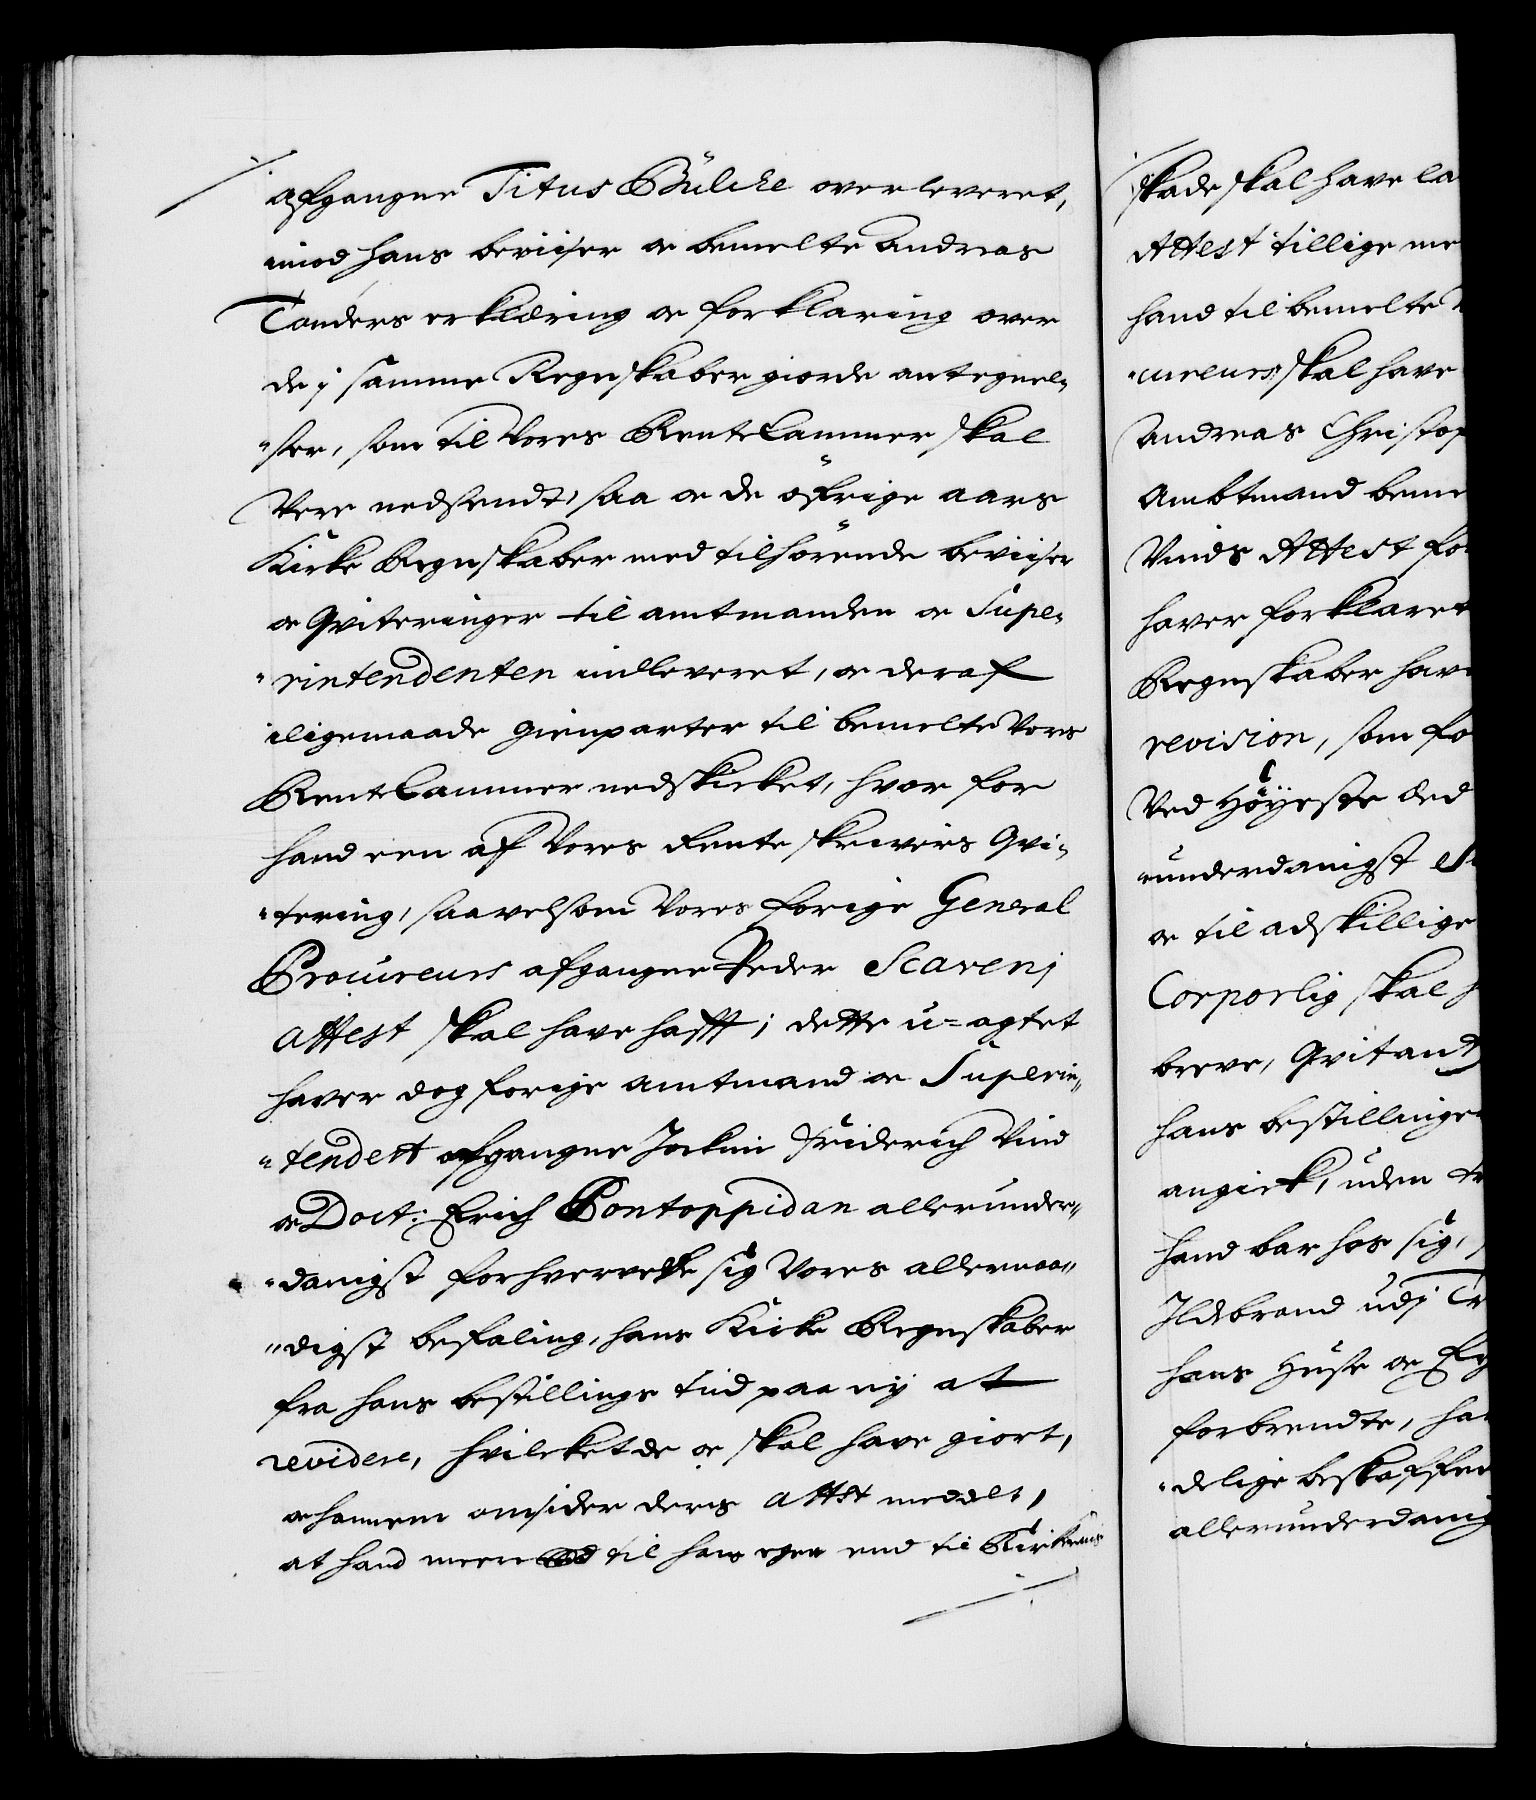 afgangne Titus Bülche overleveret,
imod hans beviiser oc bemelte Andreas
Tønders erklæring oc forklaring over
de j samme Regnskaber giorde antegnel-
-ser, som til Vores RenteCammer skal
Vere nedsendt, saa oc de öfrige aars
Kirke Regnskaber med tilhörende beviiser
oc Qviteringer til amtmanden oc Supe-
-rintendenten indleveret, oc deraf
iligemaade gienparter til bemelte Vores
RenteCammer nedskicket, hvor for
hand een af Vores Rente skrivers Qvi-
-tering, saavelsom Vores forige General
Procureurs afgangne Peder Scavenj
Attest skal have hafft; dette u-agtet
haver dog forige amtmand oc Superin-
-tendent afgangne Jockim Friderich Vind
oc Doct: Erich Pontoppidan allerunder-
-danigst forhvervede sig Vores allernaa-
-digst befaling, hans Kirke Regnskaber
fra hans bestillings tiid paa nÿ at
revidere, hvilcket de oc skal have giort,
oc hannem omsider deris Attest meddelt,
at hand meere til hans egen end til Kirkernis
skade skal have la
Attest tillige me
hand til bemelte
-cureurs skal have
Andreas Christop
Ambtmand beme
Vinds Attest for
haver forklaret
Regnskaber hav
revision, som fo
Ved Höyeste Eed
-underdanigst
oc til adskillige
Corporlig skal h
breve, Qvitantz
hans bestillinge
angick, uden
hand bar hos sig,
Ildebrand udj Tr
hans Huse oc
forbrendte, ha
-delige beskaffen
allerunderdanig